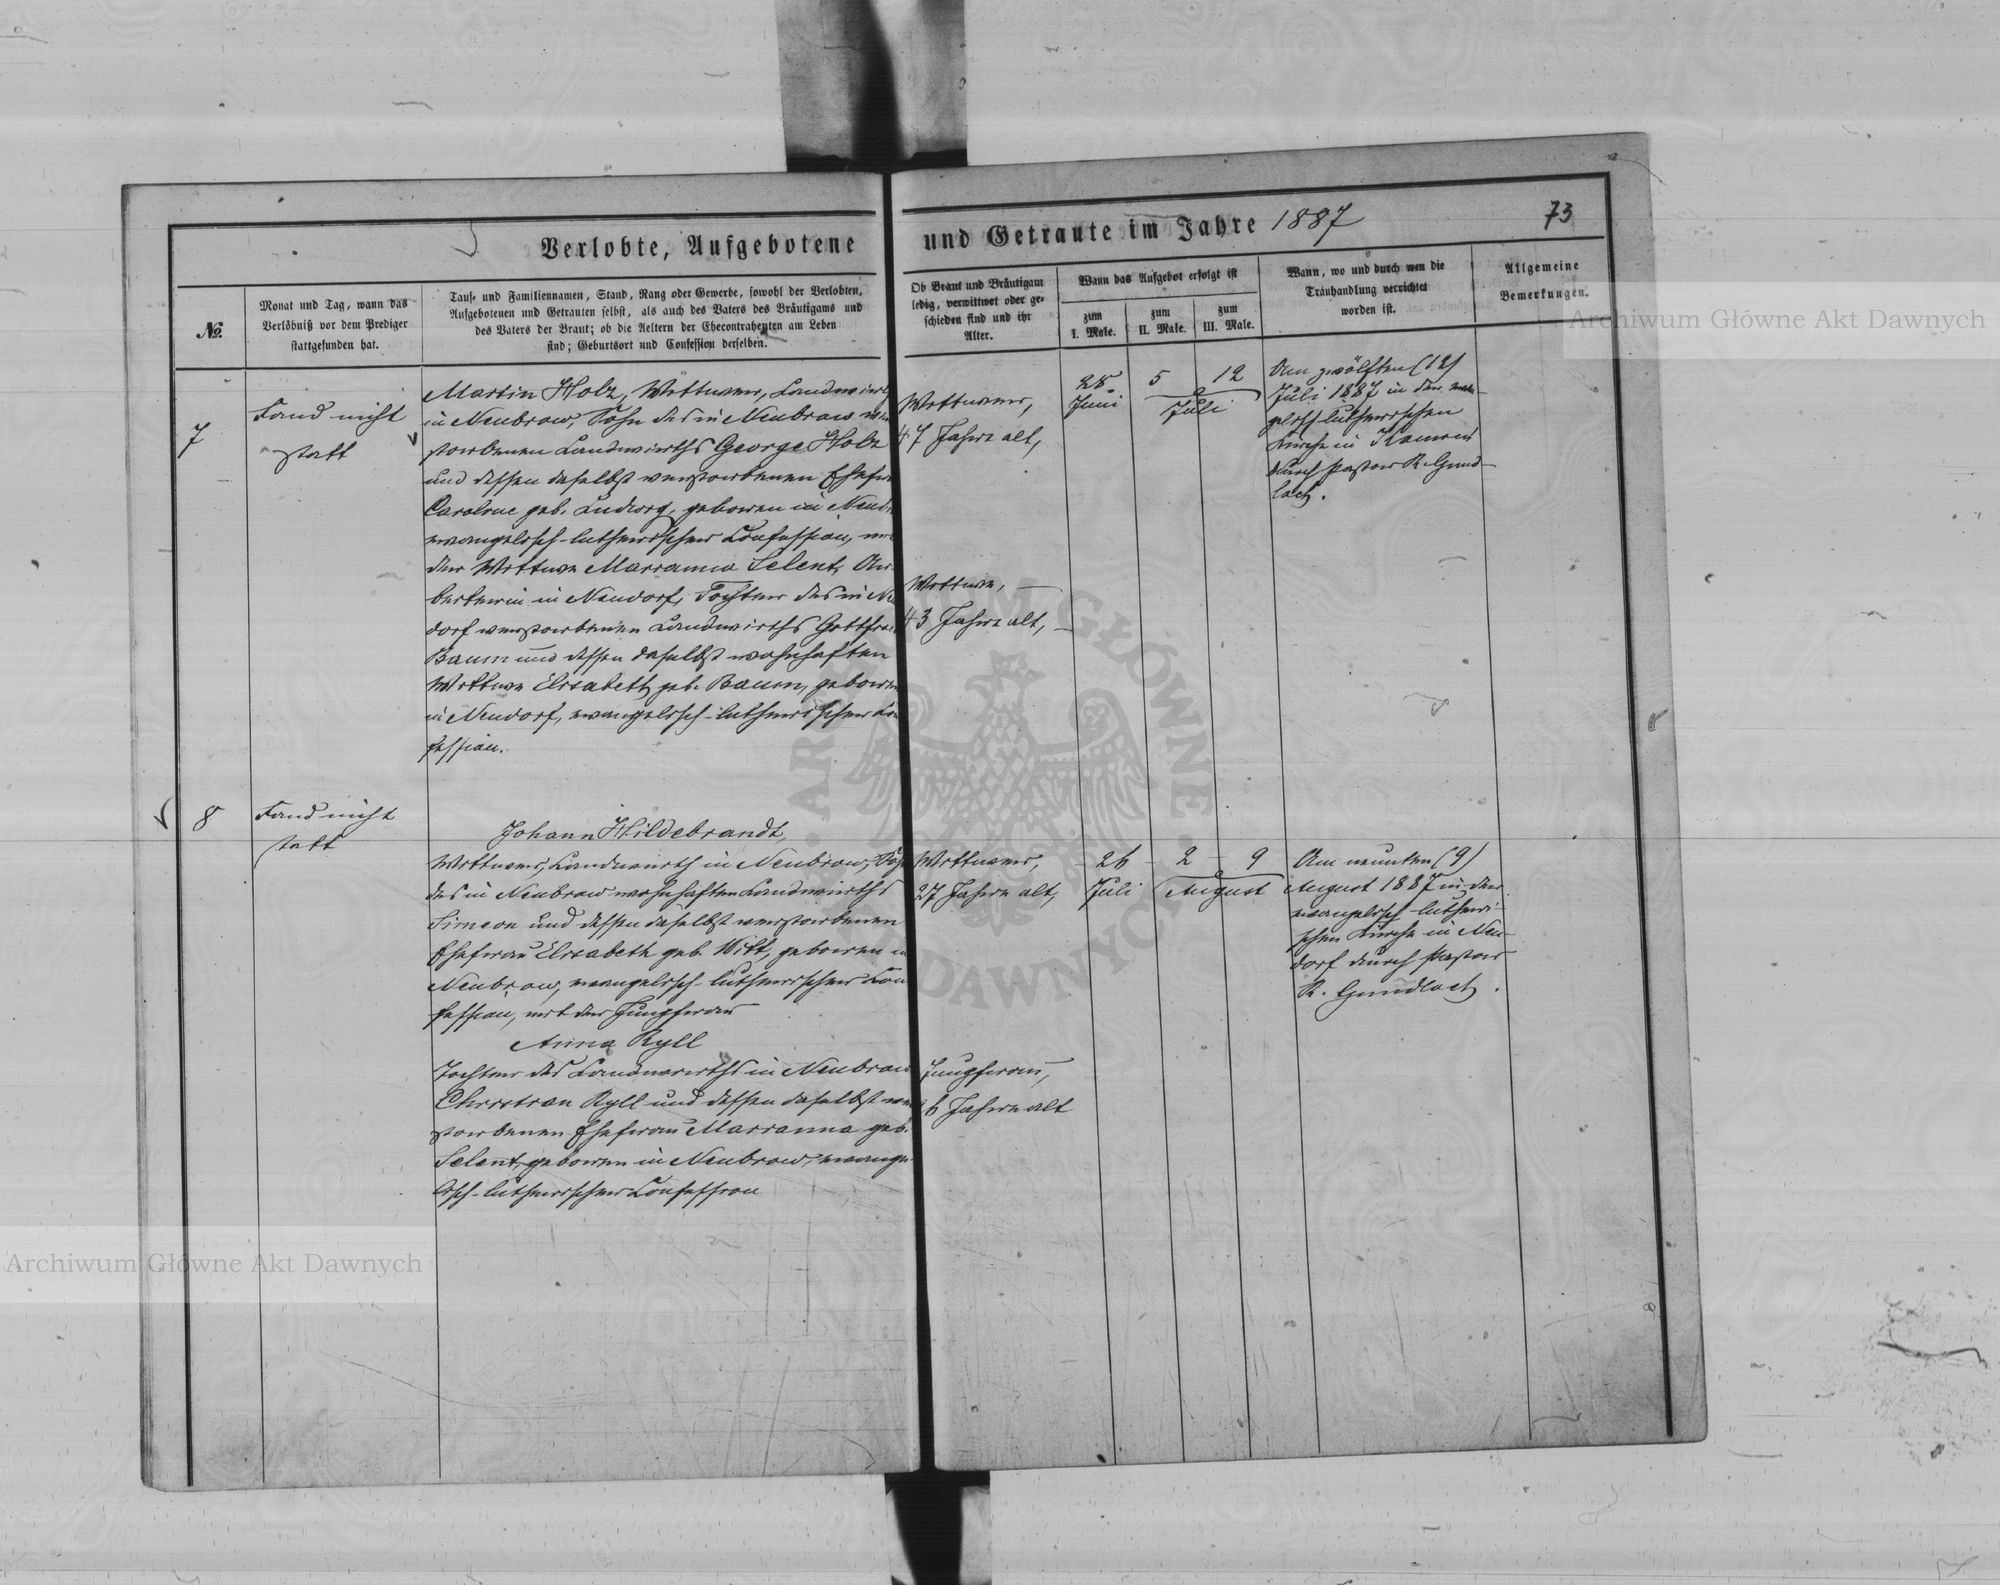 Verlobte, Aufgebotene und Getraute im Jahre 1887
73
№.
Monat und Tag, wann das
Verlöbniß vor dem Prediger
stattgefunden hat.
Tauf- und Familiennamen, Stand, Rang oder Gewerbe, sowohl der Verlobten,
Aufgebotenen und Getrauten selbst, als auch des Vaters des Bräutigams und
des Vaters der Braut; ob die Aeltern der Ehecontrahenten am Leben
sind; Geburtsort und Confession derselben.
Ob Braut und Bräutigam
ledig, verwittwet oder ge-
schieden sind und ihr
Alter.
Wann das Aufgebot erfolgt ist
zum
I. Male.
zum
II. Male.
zum
III. Male.
Wann, wo und durch wen die
Trauhandlung verrichtet
worden ist.
Allgemeine
Bemerkungen.
7
Fand nicht
statt
Martin Holz, Wittwer, Landwirth
in Neubrow, Sohn des in Neubrow ver
storbenen Landwirths George Holz
und dessen daselbst verstorbenen Ehefra
Caroline geb. Ludwig, geboren in Neub
evangelisch-lutherischer Confession, mi
der Wittwe Marianna Selent, Ar
beiterin in Neudorf, Tochter des in Ne
dorf verstorbenen Landwirths Gottfri
Baum und dessen daselbst wohnhaften
Wittwe Elisabeth geb. Baum, geboren
in Neudorf, evangelisch-lutherischer Con
fession.
Wittwer,
47 Jahre alt,
Wittwe,
43 Jahre alt,
28
Juni
5 12
Juli
Am zwölften (12)
Juli 1887 in der evan-
gelisch-lutherischen
Kirche in Kamion
durch Pastor R. Gund-
lach.
8
Fand nicht
statt
Johann Hildebrandt,
Wittwer, Landwirth in Neubrow, Soh
des in Neubrow wohnhaften Landwirths
Simeon und dessen daselbst verstorbenen
Ehefrau Elisabeth geb. Witt, geboren in
Neubrow, evangelisch-lutherischer Con
fession, mit der Jungfrau
Anna Ryll
Tochter des Landwirths in Neubrow
Christian Ryll und dessen daselbst ver
storbenen Ehefrau Marianna geb.
Selent, geboren in Neubrow, evange
lisch-lutherischer Confession
Wittwer,
27 Jahre alt,
Jungfrau,
6 Jahre alt
26
Juli
2 9
August
Am neunten (9)
August 1887 in der
evangelisch-lutheri-
schen Kirche in Neu-
dorf durch Pastor
R. Gundlach.
Archiwum Główne Akt Dawnych
Archiwum Główne Akt Dawnych